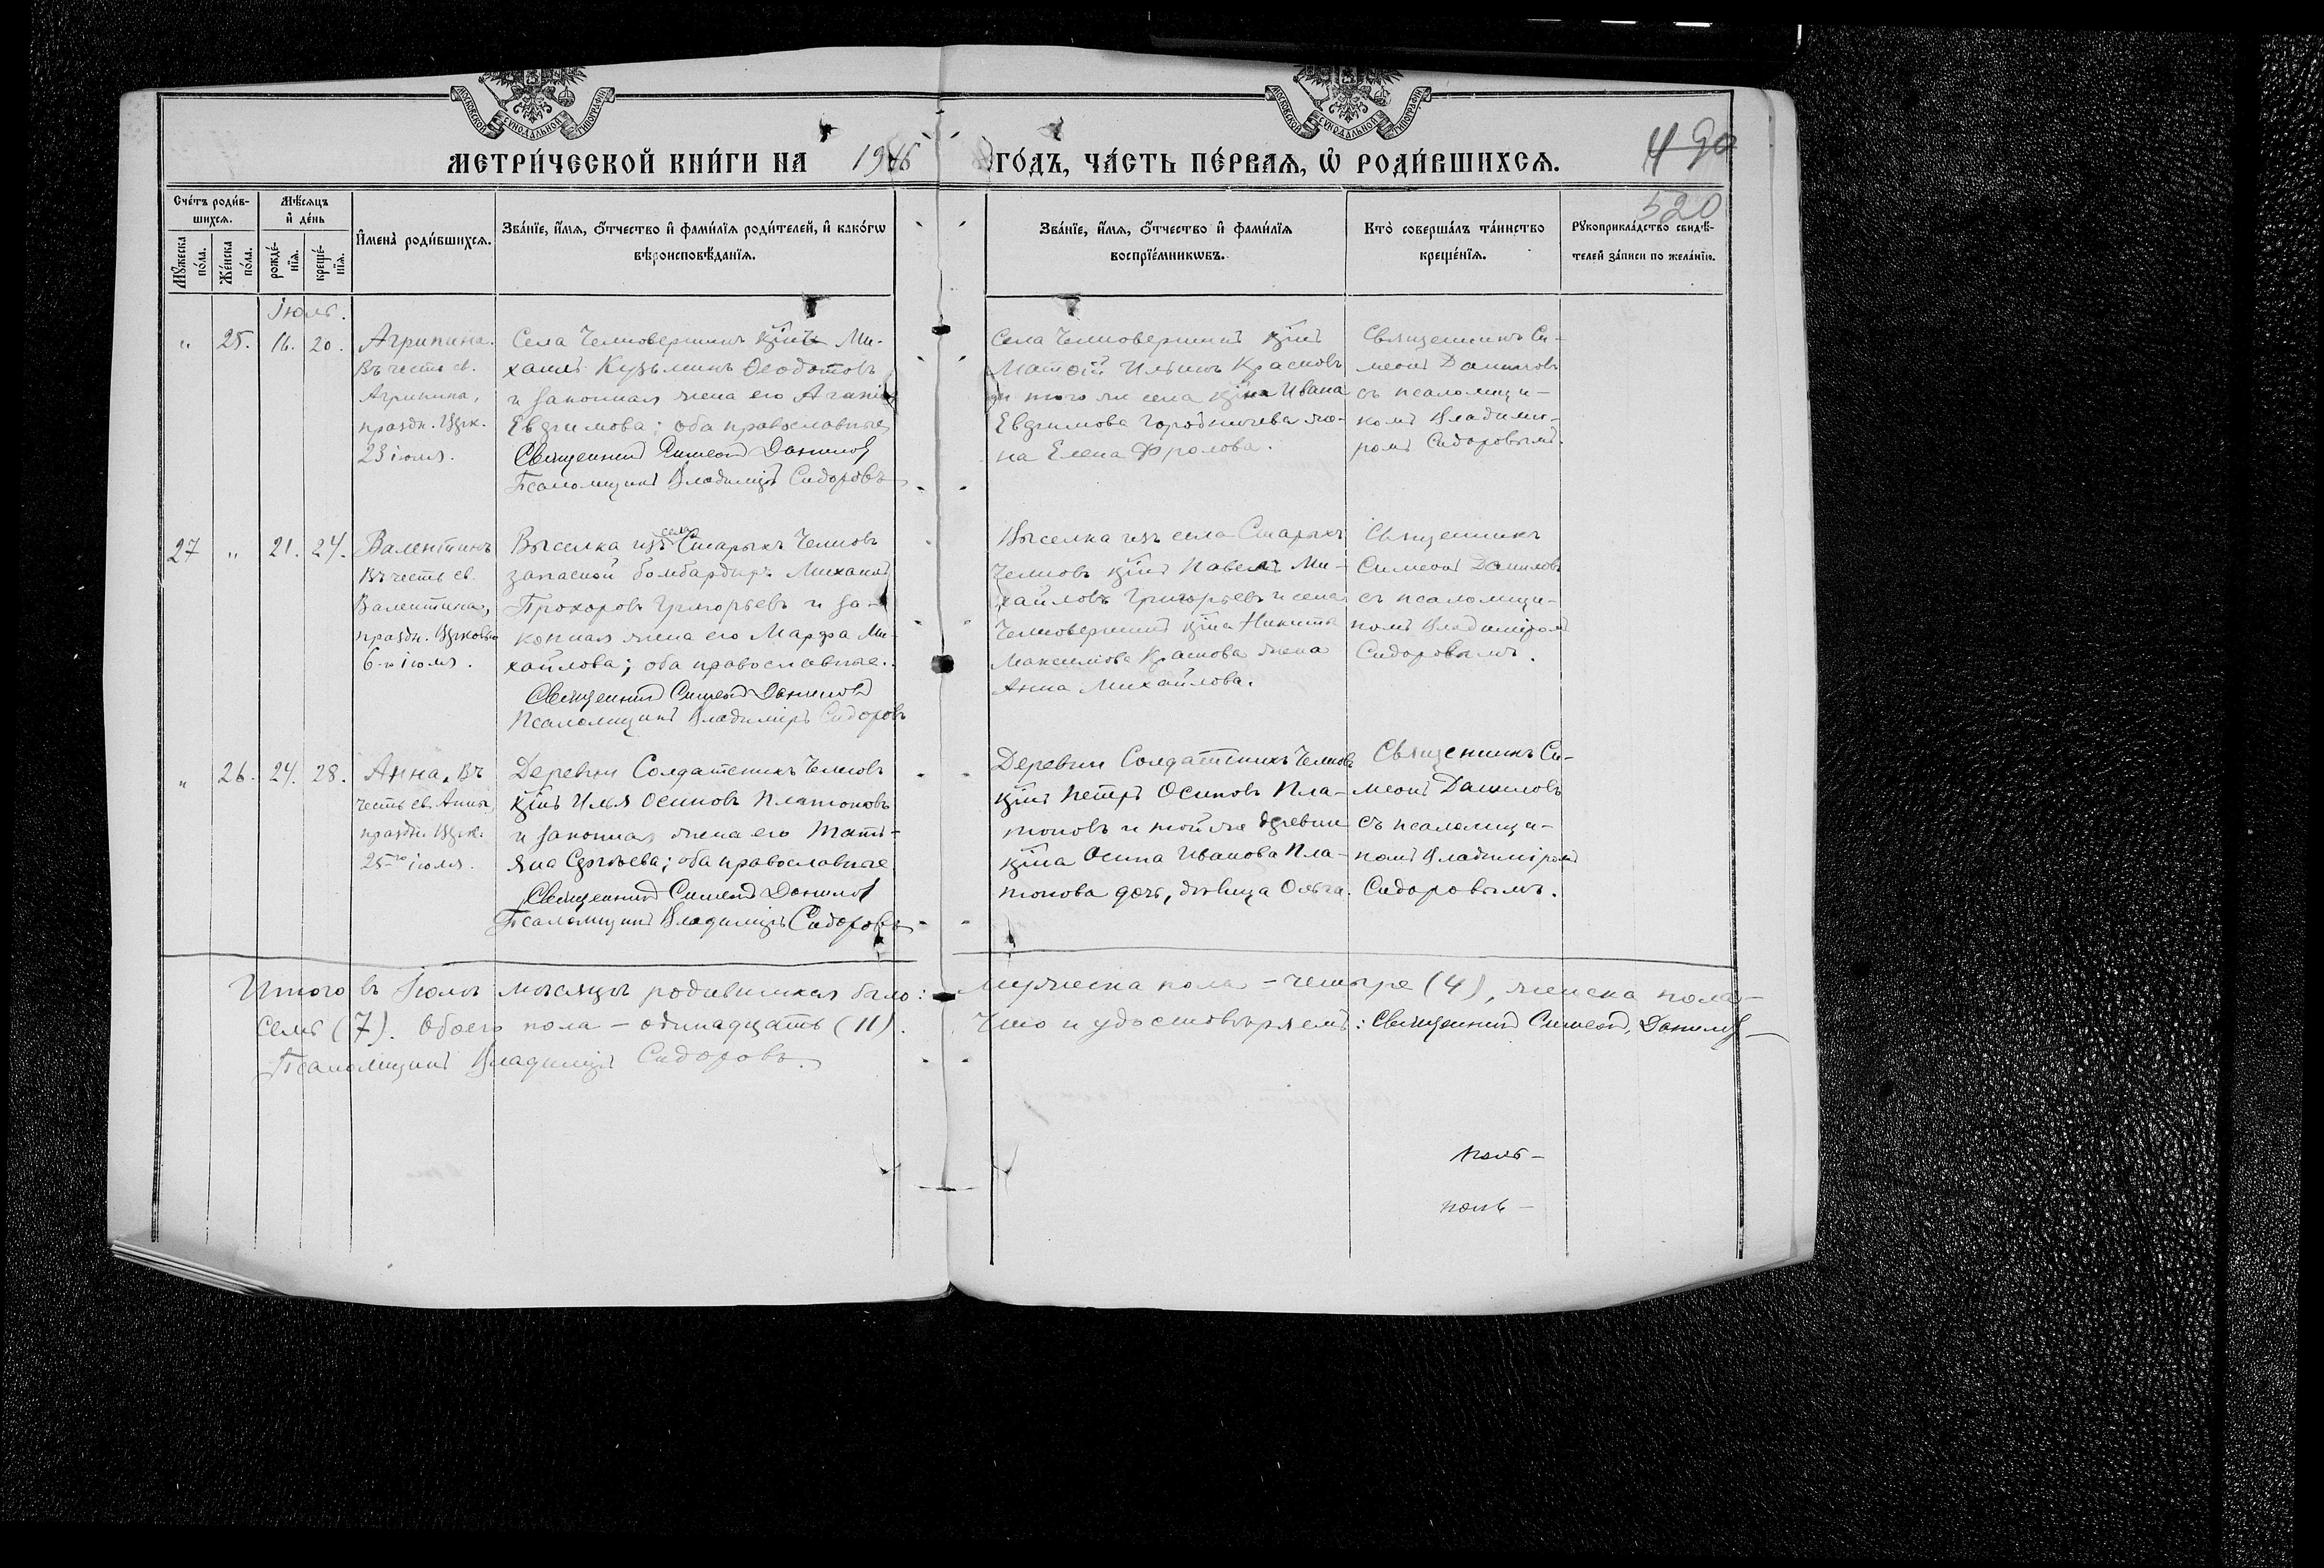 МОСКОВСКОЙ СУНОДАЛЬНОЙ ТИПОГРАФІИ
МОСКОВСКОЙ СУНОДАЛЬНОЙ ТИПОГРАФІИ
МЕТРИ́ЧЕСКОЙ КНИ́ГИ НА 19 6 ГО́ДЪ, ЧА́СТЬ ПЕ́РВАЯ, Ѡ РОДИ́ВШИХСЯ.
490
520
Сче́тъ роди́в-
шихся.
Мѣ́сяцъ
и҆ де́нь
Мꙋ́жеска по́ла.
Же́нска по́ла.
рожде́-
нїя.
креще́-
нїя.
И҆мена̀ роди́вшихся.
Зва́нїе, и҆́мя, ѻ҆́тчество и҆ фами́лїя роди́телей, и҆ како́гѡ
вѣроисповѣ́данїя.
Зва́нїе, и҆́мя, ѻ҆́тчество и҆ фами́лїя
воспрїе́мникѡвъ.
Кто̀ соверша́лъ та́инство
креще́нїя.
Рꙋкоприкла́дство свидѣ́-
телей за́писи по жела́нїю.
Іюль.
„ 25. 16. 20.
Агрипина.
Въ честь св.
Агрипины,
праздн. Црк.
23 іюня.
Села Челновершинъ кр̃нъ Ми-
хаилъ Кузьминъ Ѳеодотовъ
и законная жена его
Евѳимова; оба православные
Священникъ Симеонъ Даниловъ
Псаломщикъ Владиміръ Сидоровъ
Села Челновершинъ кр̃нъ
Матѳій Ильинъ Красновъ
и того же села кр̃на Ивана
Евѳимова Городничева же-
на Елена Фролова.
Священникъ Си-
меонъ Даниловъ
съ псаломщи-
комъ Владими-
ромъ Сидоровымъ.
27 „ 21. 24.
Валентинъ
Въ честь св.
Валентина,
праздн. Црковью
6-го іюля.
Выселка изъ села Старыхъ Челновъ
запасной бомбардиръ Михаилъ
Прохоровъ Григорьевъ и за-
конная жена его Марѳа Ми-
хайлова; оба православные.
Священникъ Симеонъ Даниловъ
Псаломщикъ Владиміръ Сидоровъ
Выселка изъ села Старыхъ
Челновъ кр̃нъ Павелъ Ми-
хайловъ Григорьевъ и села
Челновершинъ кр̃на Никиты
Максимова Краснова жена
Анна Михайлова.
Священникъ
Симеонъ Даниловъ
съ псаломщи-
комъ Владиміромъ
Сидоровымъ.
„ 26. 24. 28.
Анна, въ
честь св. Анны,
праздн. Црк.
25-го іюля.
Деревни Солдатскихъ Челновъ
кр̃нъ Илья Осиповъ Платоновъ
и законная жена его Тать-
яна Сергѣева; оба православные
Священникъ Симеонъ Даниловъ
Псаломщикъ Владиміръ Сидоровъ
Деревни Солдатскихъ Челновъ
кр̃нъ Петръ Осиповъ Пла-
тоновъ и той же деревни
кр̃на Осипа Иванова Пла-
тонова дочь, дѣвица Ольга.
Священникъ Си-
меонъ Даниловъ
съ псаломщи-
комъ Владиміромъ
Сидоровымъ.
Итого въ Іюлѣ мѣсяцѣ родившихся было: мужеска пола – четыре (4), женска пола –
семь (7). Обоего пола – одинадцать (11). Что и удостовѣряемъ: Священникъ Симеонъ Даниловъ
Псаломщикъ Владиміръ Сидоровъ.